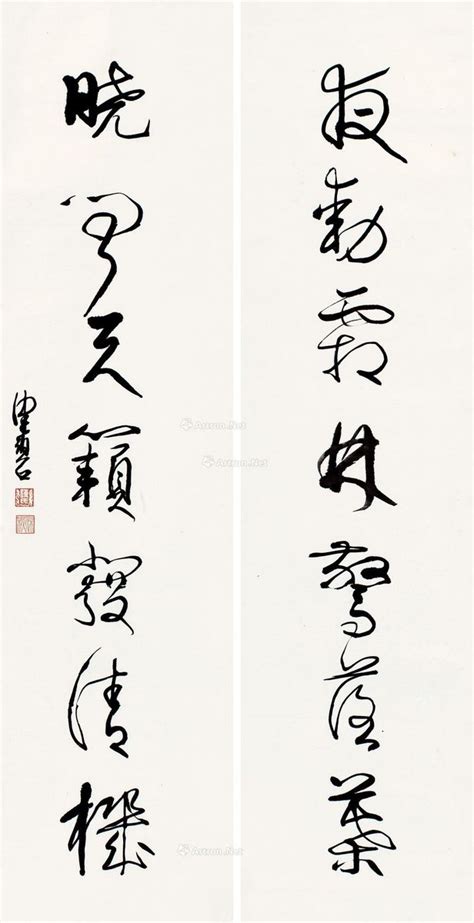 夜動霜林驚落葉
曉聞天籟發清機
Artron.Net
Artron.Net
Artron.Net